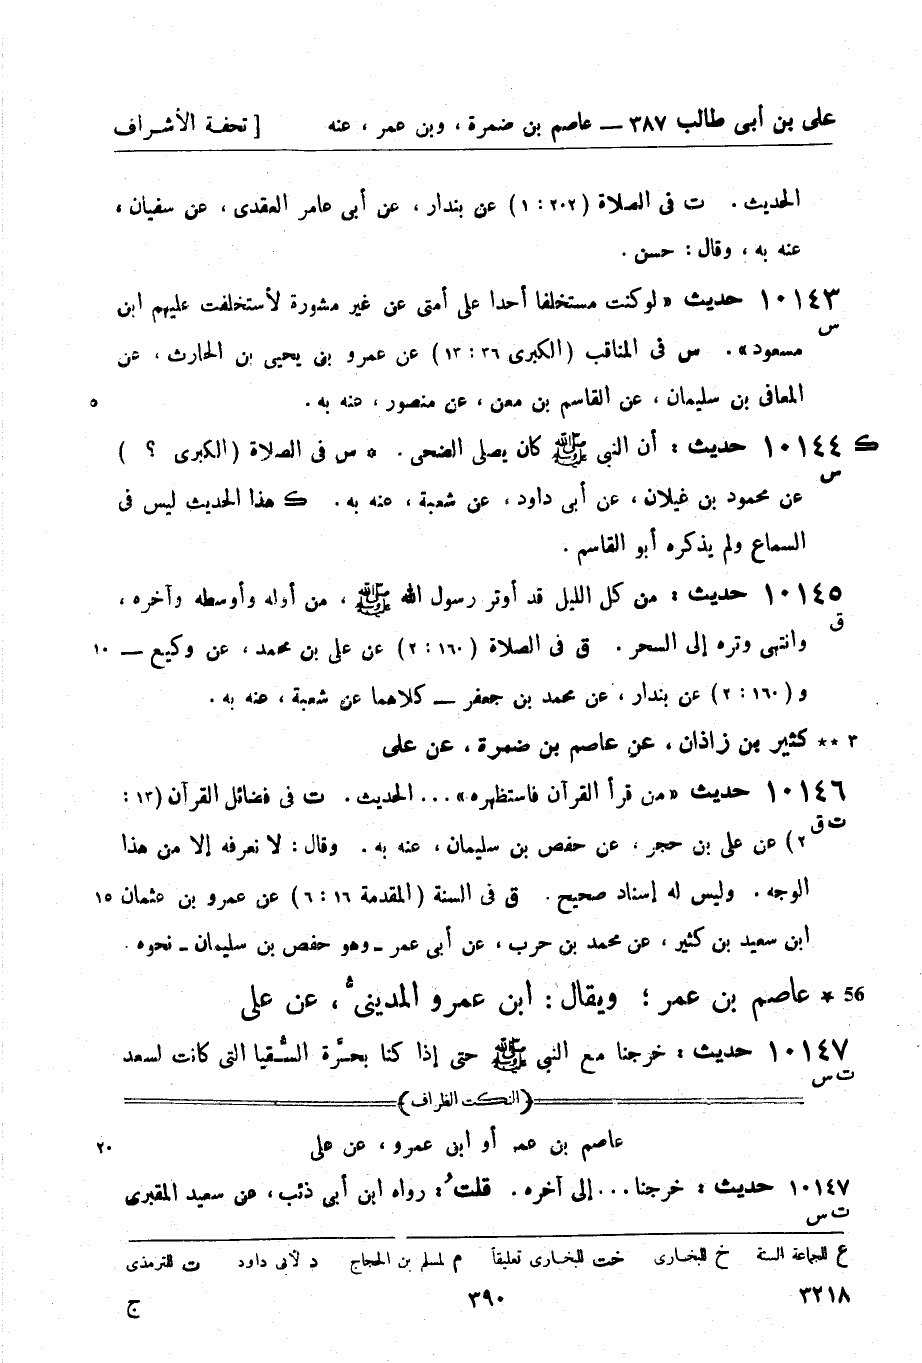 على بن أبى طالب ٣٨٧ — عاصم بن ضمرة ، وبن عمر ، عنه [ تحفة الأشراف
الحديث . ت فى الصلاة (٢٠٢ : ١) عن بندار ، عن أبى عامر العقدى ، عن سفيان ،
عنه به ، وقال : حسن .
١٠١٤٣ حديث «لوكنت مستخلفا أحدا على أمتى عن غير مشورة لأستخلفت عليهم ابن
س
مسعود» . س فى المناقب (الكبرى ٣٦ : ١٣) عن عمرو بن يحيى بن الحارث ، عن
المعافى بن سليمان ، عن القاسم بن معن ، عن منصور ، عنه به . ٥
ك ١٠١٤٤ حديث : أن النبى ﷺ كان يصلى الضحى . * س فى الصلاة (الكبرى ؟ )
س
عن محمود بن غيلان ، عن أبى داود ، عن شعبة ، عنه به . ك هذا الحديث ليس فى
السماع ولم يذكره أبو القاسم .
١٠١٤٥ حديث : من كل الليل قد أوتر رسول الله ﷺ ، من أوله وأوسطه وآخره ،
ق
وانتهى وتره إلى السحر . ق فى الصلاة (١٦٠ : ٢) عن على بن محمد ، عن وكيع — ١٠
و (١٦٠ : ٢) عن بندار ، عن محمد بن جعفر — كلاهما عن شعبة ، عنه به .
٣ ** كثير بن زاذان ، عن عاصم بن ضمرة ، عن على
١٠١٤٦ حديث «من قرأ القرآن فاستظهره» ... الحديث . ت فى فضائل القرآن (١٣ :
ت ق
٢) عن على بن حجر ، عن حفص بن سليمان ، عنه به . وقال : لا نعرفه إلا من هذا
الوجه . وليس له إسناد صحيح . ق فى السنة (المقدمة ١٦ : ٦) عن عمرو بن عثمان ١٥
ابن سعيد بن كثير ، عن محمد بن حرب ، عن أبى عمر ـ وهو حفص بن سليمان ـ نحوه .
56 * عاصم بن عمر ؛ ويقال : ابن عمرو المدينى ، عن على
١٠١٤٧ حديث : خرجنا مع النبى ﷺ حتى إذا كنا بحرَّة السُّقيا التى كانت لسعد
ت س
(النكت الظراف)
عاصم بن عمر أو ابن عمرو ، عن على ٢٠
١٠١٤٧ حديث : خرجنا ... إلى آخره . قلتُ : رواه ابن أبى ذئب ، عن سعيد المقبرى
ت س
ع للجماعة الستة خ للبخارى خت للبخارى تعليقاً م لمسلم بن الحجاج د لأبى داود ت للترمذى
٣٢١٨ ٣٩٠ ج